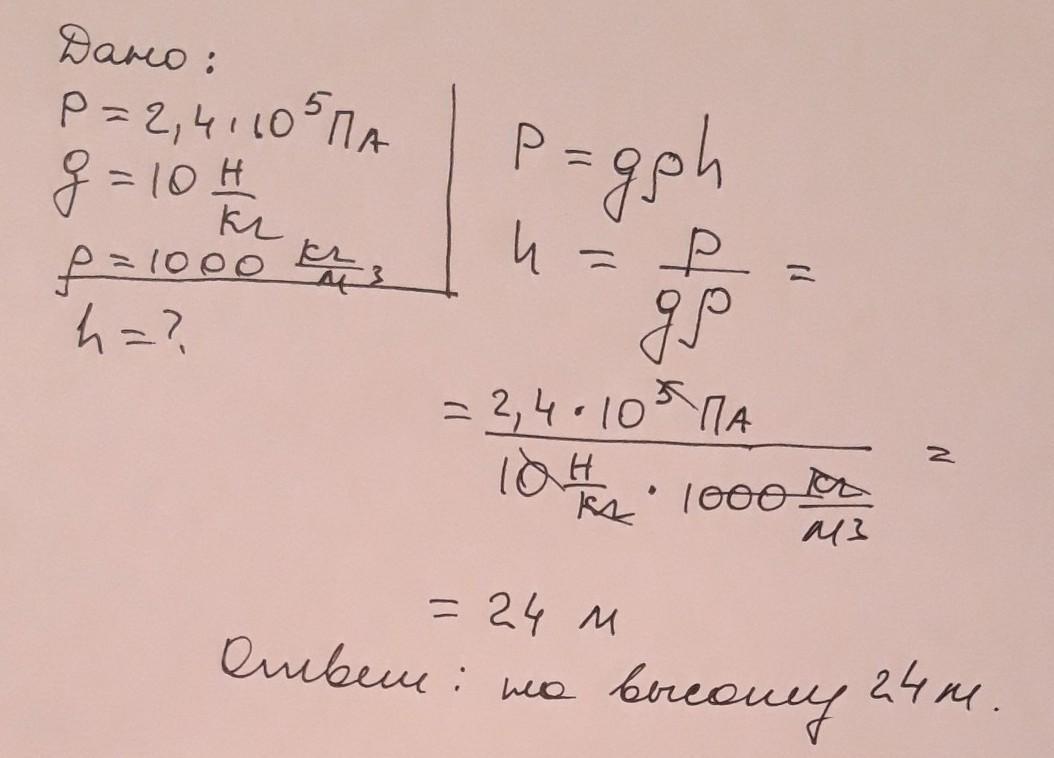 Дано:
P = 2,4 · 10⁵ ПА
g = 10 Н/кг
ρ = 1000 кг/м³
h = ?
P = gρh
h = P/gρ =
= 2,4 · 10⁵ ПА / 10 Н/кг · 1000 кг/м3 =
= 24 м
Ответ: на высоту 24 м.